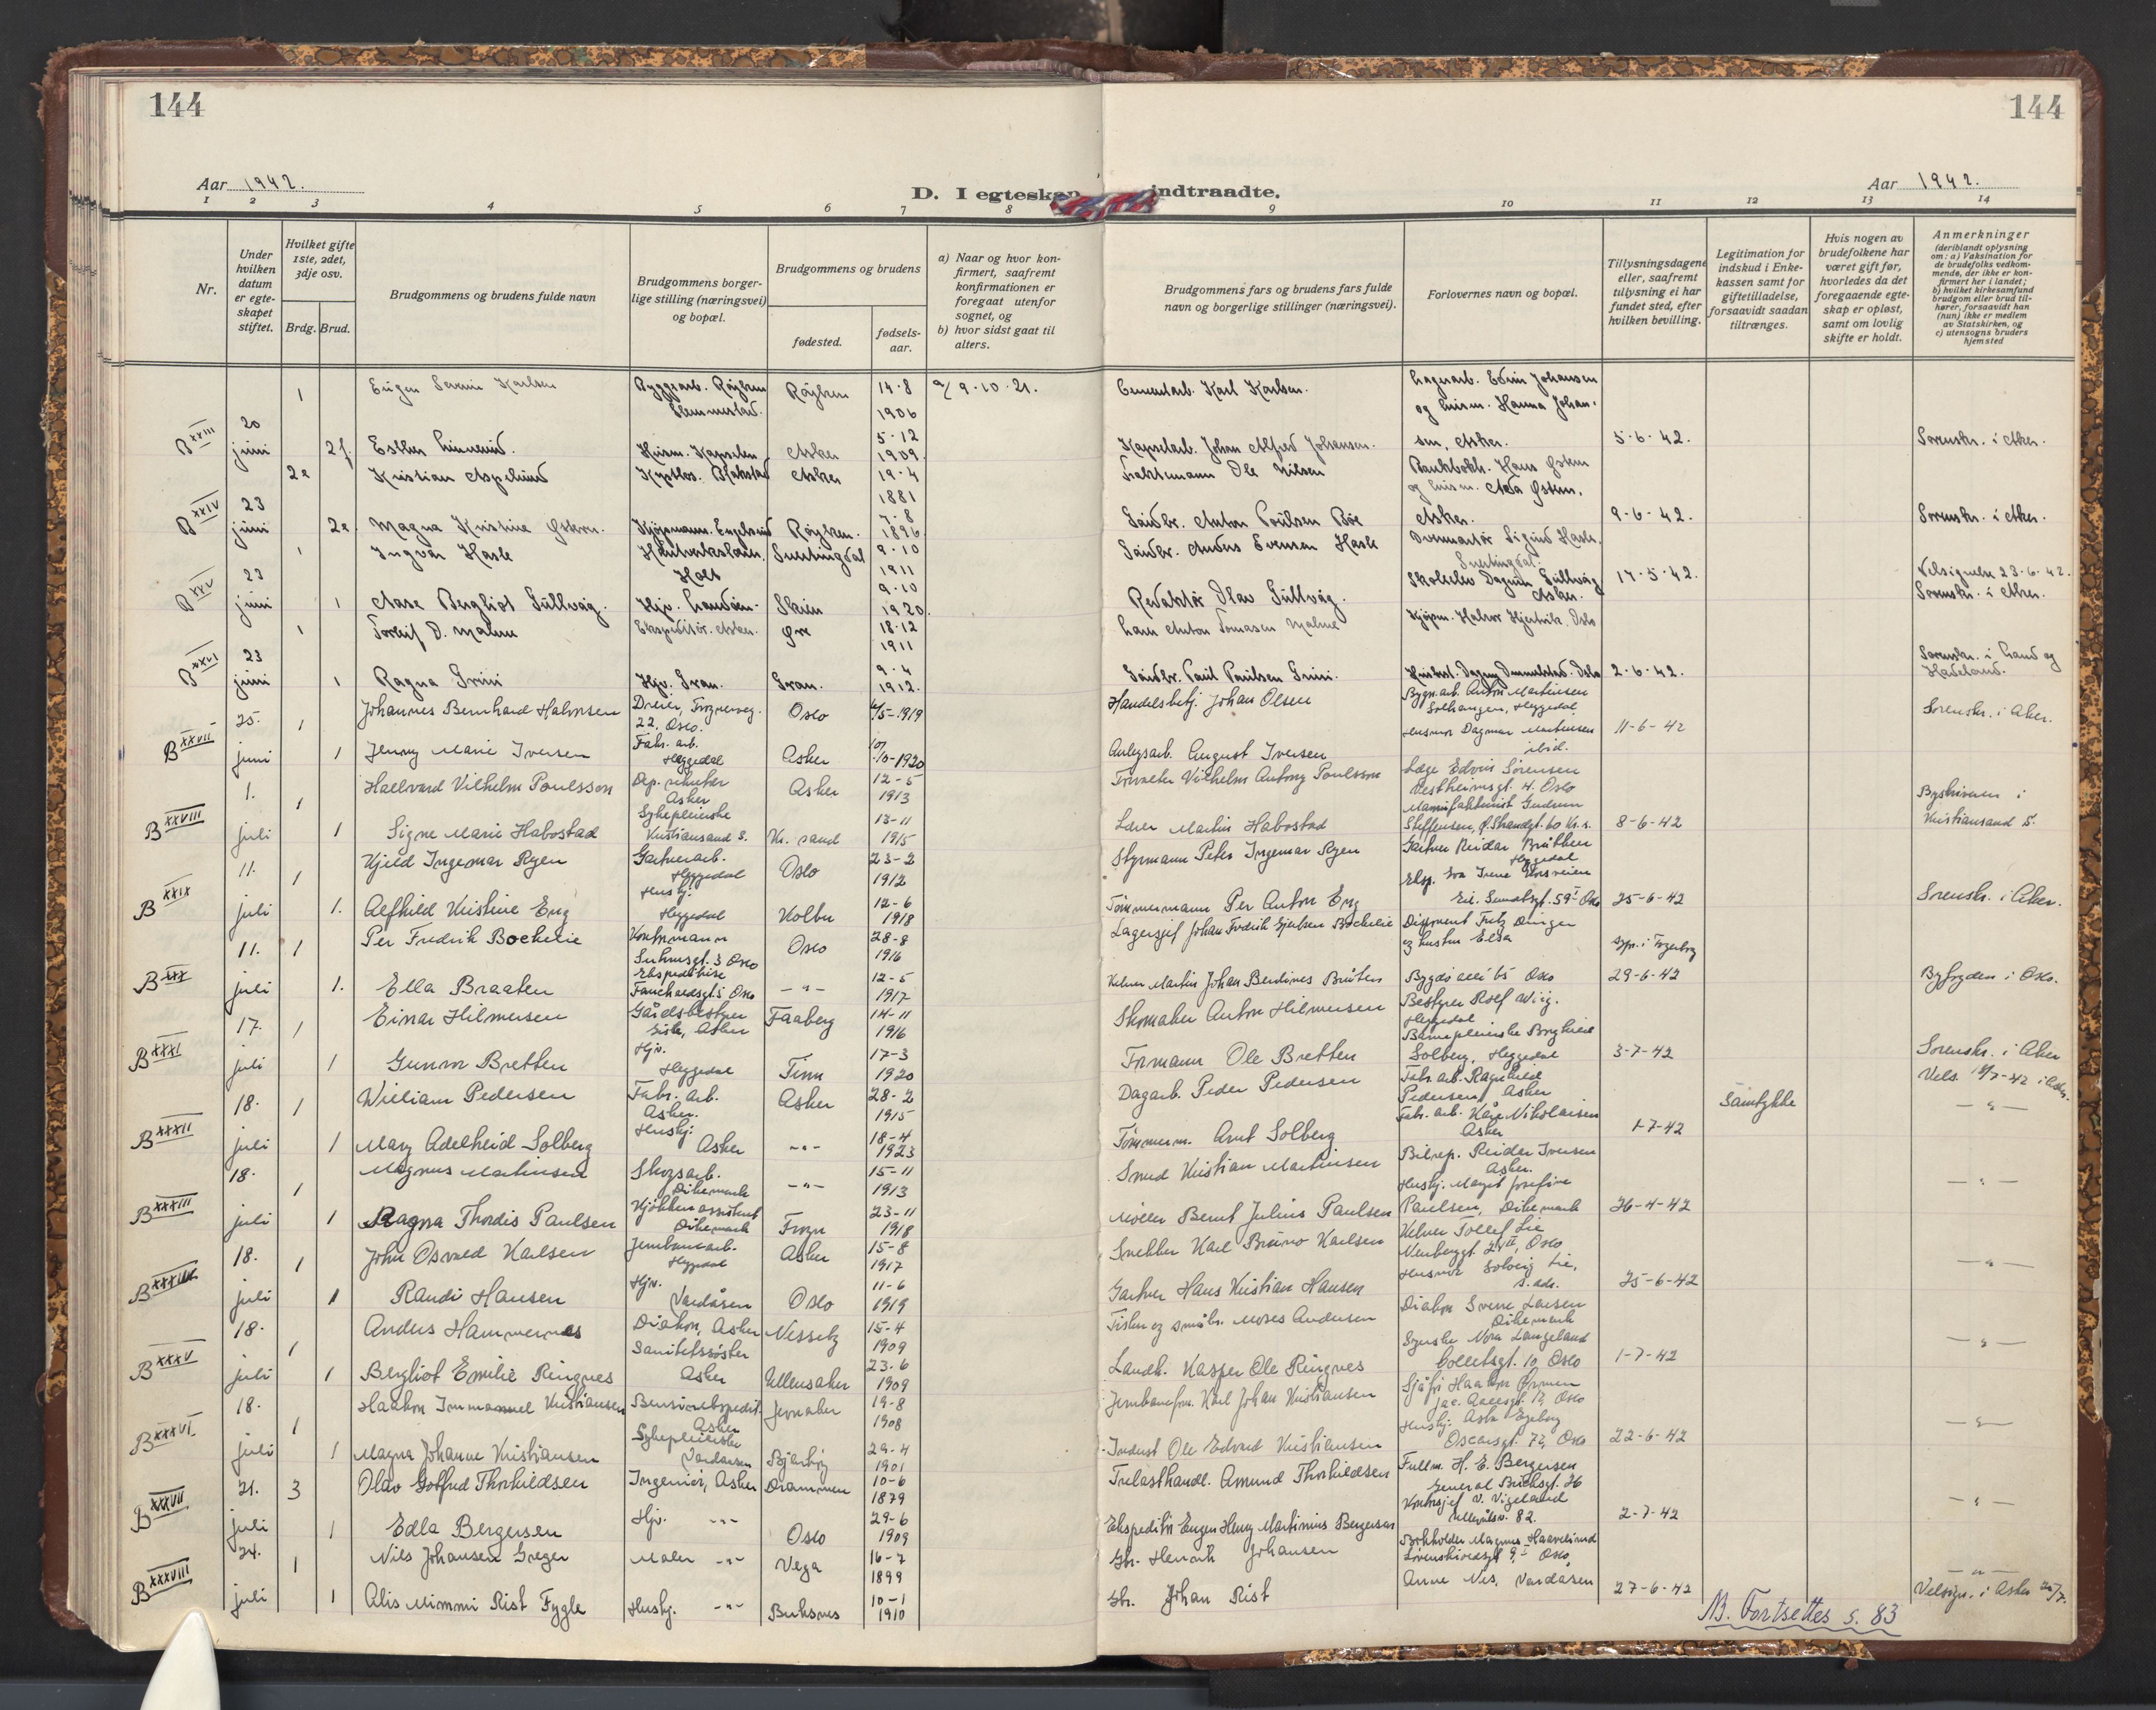 144
144
Aar 1942.
D. I egteskap indtraadte.
Aar 1942.
1 2 3 4 5 6 7 8 9 10 11 12 13 14
Nr.
Under hvilken datum er egteskapet stiftet.
Hvilket gifte 1ste, 2det, 3dje osv.
Brdg. Brud.
Brudgommens og brudens fulde navn
Brudgommens borgerlige stilling (næringsvei) og bopæl.
Brudgommens og brudens
fødested.
fødselsaar.
a) Naar og hvor konfirmert, saafremt konfirmationen er foregaat utenfor sognet, og
b) hvor sidst gaat til alters.
Brudgommens fars og brudens fars fulde navn og borgerlige stillinger (næringsvei).
Forlovernes navn og bopæl.
Tillysningsdagene eller, saafremt tillysning ei har fundet sted, efter hvilken bevilling.
Legitimation for indskud i Enkekassen samt for giftetilladelse, forsaavidt saadan tiltrænges.
Hvis nogen av brudefolkene har været gift før, hvorledes da det foregaaende egteskap er opløst, samt om lovlig skifte er holdt.
Anmerkninger
(deriblandt oplysning om: a) Vaksination for de brudefolks vedkommende, der ikke er konfirmert her i landet;
b) hvilket kirkesamfund brudgom eller brud tilhører, forsaavidt han (hun) ikke er medlem av Statskirken, og
c) utensogns bruders hjemsted
B XXIII 20 juni 1 Eugen Severin Karlsen Byggearb. Røyken Slemmestad. Røyken 14-8 1906 a/ 9-10-21. Cementarb. Karl Karlsen. Lagerarb. Edvin Johansen og husm. Hanna Johansen, Asker.
2f Esther Husm. Asker 5-12 1909 Johan Alfred Johansen. 5-6-42. Sorenskr. i Aker.
B XXIV 23 juni 2e Kristian Aspelund Asker 19-4 1881 Ole Nilsen Bankbokh. Hans og husm. Asker.
2e Magna Kristine Røyken. 7-8 1896 Gårdbr. Anton Poulsen Bøe 9-6-42. Sorenskr. i Aker.
B XXV 23 juni 1 Ingvar Hasle Holt Snertingdal 9-10 1911 Gårdbr. Anders Evensen Hasle Sigurd Hasle, Snertingdal.
1 Aase Bergliot Gullvåg. Hjv. Skien 9-10 1920. Redaktør Olav Gullvåg. Dagrun Gullvåg Asker. 17-5-42. Velsignelse 23-6-42. Sorenskr. i Aker.
B XXVI 23 juni 1 Torleif D. Malme Ekspeditør. Asker. 18-12 1911 Anton Tomasen Malme Kjøpm. Halvor Oslo
1 Ragna Grini Hjv. Gran. Gran. 9-4 1912. Gårdbr. Paul Paulsen Grini. Oslo 2-6-42. Sorenskr. i Land og Hadeland.
B XXVII 25. juni 1 Johannes Bernhard Halvorsen Dreier, Frognerveg. 22, Oslo. Oslo 4/5-1919 Handelsbetj. Johan Olsen Bygn.arb. Anton Martinsen Solhaugen, Heggedal.
1 Jenny Marie Iversen Fabr. arb. Heggedal Asker 10/10-1920 Anlegsarb. August Iversen Husmor Dagmar Martinsen ibid. 11-6-42 Sorenskr. i Aker.
B XXVIII 1. juli 1 Hallvard Vilhelm Poulsson Dep. sekretær Asker Asker 12-5 1913 Forvalter Vilhelm Antony Poulsson Læge Edvin Sørensen Vestheimsgt. 4. Oslo
1 Signe Marie Habostad Sykepleierske Kristiansand S. Kr. sand 13-11 1915 Lærer Martin Habostad Gudrun Steffensen, Ø. Strandgt. 60 Kr. s. 8-6-42 Byskriveren i Kristiansand S.
B XXIX 11. juli 1 Kjeld Ingemar Ryen Gartnerarb. Heggedal Oslo 23-2 1912 Styrmann Peter Ingemar Ryen Gartner Reidar Bråthen Heggedal
1. Alfhild Kristine Eng Hushj. Heggedal Kolbu 12-6 1918 Tømmermann Per Anton Eng Eksp. Eva Irene Eil. Sundtsgt. 59 I Oslo 25-6-42 Sorenskr. i Aker.
B XXX 11. juli 1 Per Fredrik Bockelie Kontormann Suhmsgt. 3 Oslo Oslo 28-8 1916 Lagersjef Johan Fredrik Gjertsen Bockelie Disponent Fritz Dinger og hustru Elsa
1. Ella Braaten Ekspeditrise Fauchaldsgt. 5 Oslo -"- 12-5 1917 Kelner Martin Johan Berdines Bråten Bygdø allé 65 Oslo 29-6-42 Byfogden i Oslo.
B XXXI 17. juli 1 Einar Hilmersen Gårdsbestyrer Asker Faaberg 14-11 1916 Skomaker Anton Hilmersen Bestyrer Rolf Wiig. Heggedal
1 Gunvor Bretten Hjv. Heggedal Tinn 17-3 1920 Formann Ole Bretten Barnepleierske Borghild Solberg, Heggedal 3-7-42 Sorenskr. i Aker
B XXXII 18. juli 1 William Pedersen Fabr. arb. Asker. Asker 28-2 1915 Dagarb. Peder Pedersen Fabr. arb. Ragnhild Pedersen, Asker Samtykke
1 Mary Adelheid Solberg Hushj. Asker -"- 18-4 1923 Tømmerm. Arnt Solberg Fabr. arb. Kåre Nikolaisen Asker 1-7-42 -"-
B XXXIII 18. juli 1 Magnus Martinsen Skogsarb. Dikemark -"- 15-11 1913 Smed Kristian Martinsen Bilrep. Reidar Iversen Asker.
1 Ragna Thordis Paulsen Kjøkkenassistent Dikemark Frogn 23-11 1918 Møller Bernt Julius Paulsen Hushj. Margit Josefine Paulsen, Dikemark 26-4-42 -"-
B XXXIV 18. juli 1 John Osvald Karlsen Jernbanearb. Heggedal Asker 15-8 1917 Snekker Karl Bruno Karlsen Kelner Tollef Lie Oslo
1 Randi Hansen Hjv. Vardåsen Oslo 11-6 1919 Gartner Hans Kristian Hansen Husmor Solveig Lie, s. adr. 25-6-42 -"-
B XXXV 18. juli 1 Anders Hammernes Diakon, Asker Nesseby 15-4 1909 Fisker og småbr. Moses Andersen Diakon Sverre Larsen Dikemark
1 Bergliot Emilie Ringnes Sanitetssøster Asker Ullensaker 23-6 1909 Landh. Kasper Ole Ringnes Nora Langeland Colletsgt. 10, Oslo 1-7-42 -"-
B XXXVI 18. juli 1 Haakon Immanuel Kristiansen Bensinekspedit. Asker Jevnaker 19-8 1908 Karl Johan Kristiansen Haakon Jac. Aallsgt. Oslo
1 Magna Johanne Kristiansen Sykepleierske Vardåsen 29-4 1901 Ole Edvard Kristiansen Hushj. Asta Engebg Oscarsgt. 72, Oslo 22-6-42 -"-
B XXXVII 21. juli 3 Olav Gotfred Thorkildsen Ingeniør, Asker Drammen 10-6 1879 Trelasthandl. Amund Thorkildsen Fullm. H. E. Bergersen General Birchsgt. 26
1 Edla Bergersen Hjv. -"- Oslo 29-6 1909 Ekspeditør Eugen Henry Martinius Bergersen Kontorsjef V. Vigeland Ullevålsv. 82. 2-7-42 -"-
B XXXVIII 24. juli 1 Nils Johansen Greger Maler -"- Vega 16-7 1899 Gbr. Henrik Johansen Bokholder Magnus Haavelsrud Løvenskioldsgt 9, I Oslo,
1 Alis Mimmi Rist Fygle Hushj. -"- Buksnes 10-1 1910 Gbr. Johan Rist Anne Nes, Vardåsen 27-6-42 -"- Velsign. i Asker
NB. Fortsettes s. 83